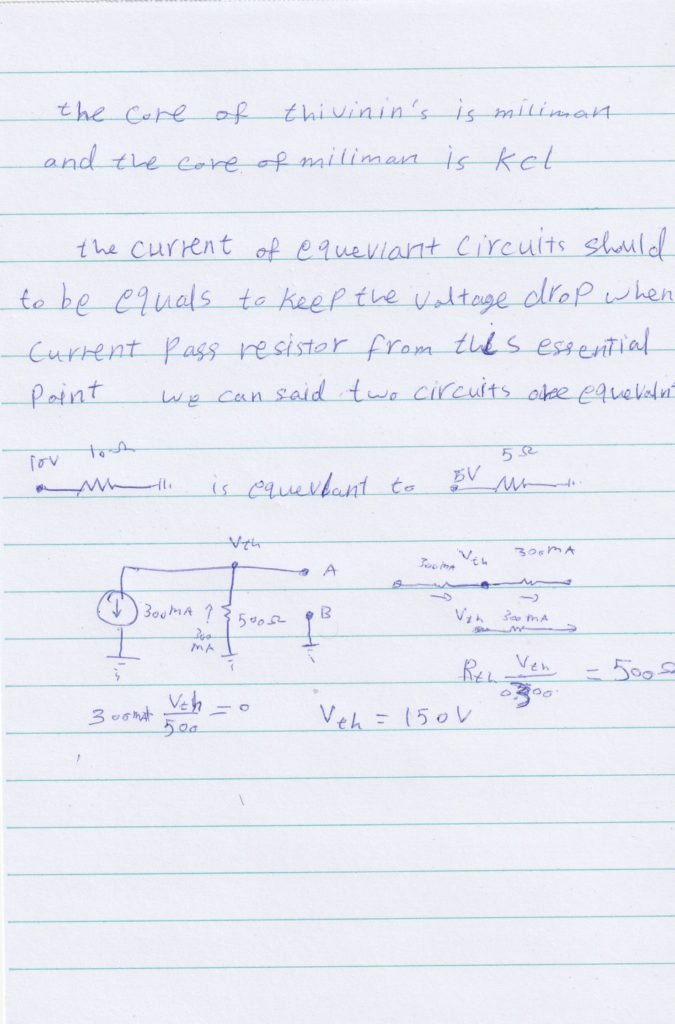 the core of thivinin's is miliman
and the core of miliman is kcl
the current of equevlant circuits should
to be equals to keep the voltage drop when
current pass resistor from this essential
point we can said two circuits are equevalnt
10V 10Ω is equevlant to 5V 5Ω
Vth
A
300mA
300 mA
500Ω
B
300mA Vth 300mA
Vth 300mA
Rth Vth / 0.300 = 500Ω
300mA Vth / 500 = 0
Vth = 150V